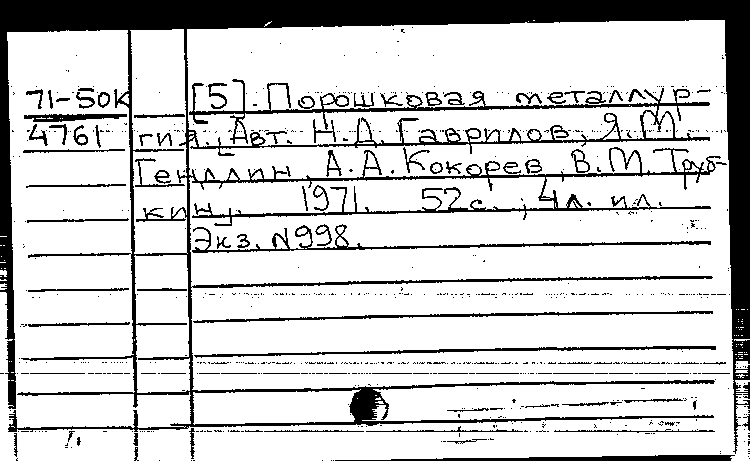 71-50К [5]. Порошковая металлур-
4761 гия. [Авт. Н.Д. Гаврилов, Я.М.
Гендлин, А.А. Кокорев, В.М. Труб-
кин]. 1971. 52 с., 4 л. ил.
Экз. N998.